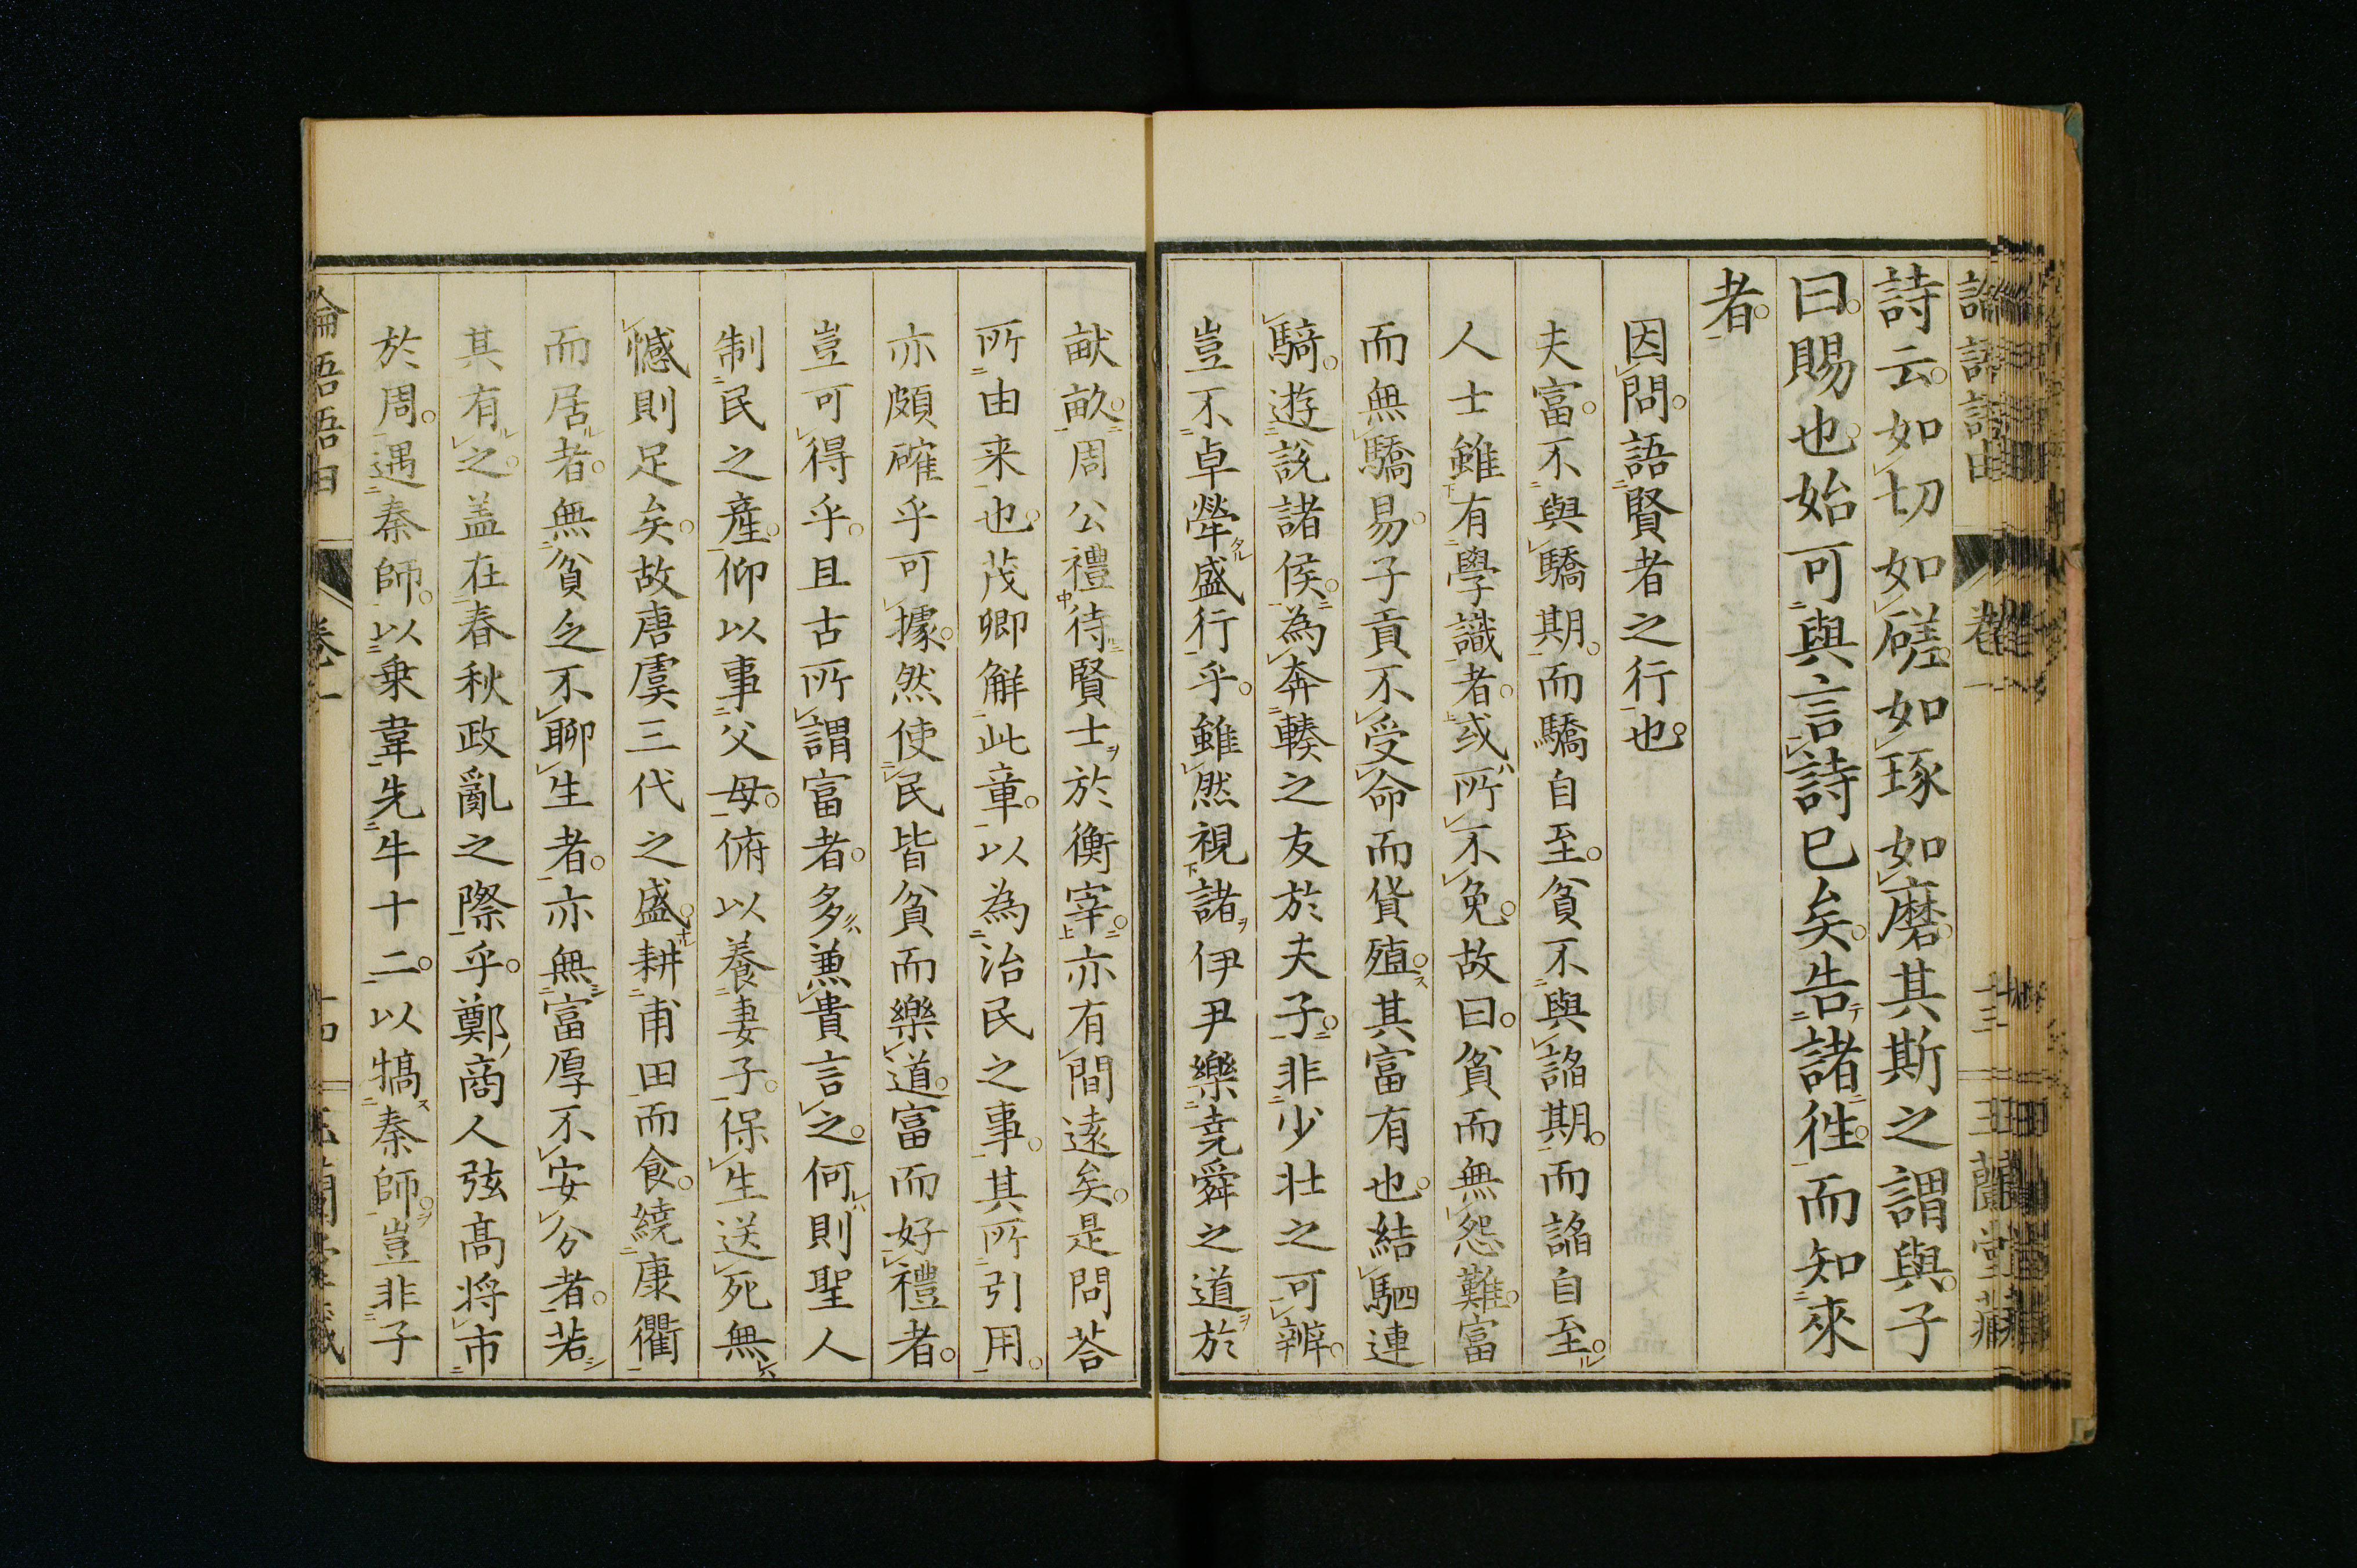 論語語由
卷一
十三
玉蘭堂藏
詩云。如切如磋。如琢如磨。其斯之謂與。子
曰。賜也。始可與言詩已矣。告諸徃。而知來
者。
因問。語賢者之行也。
夫富。不與驕期。而驕自至。貧不與諂期。而諂自至。
人士雖有學識者。或所不免。故曰。貧而無怨難。富
而無驕易。子貢不受命而貨殖。其富有也。結駟連
騎。遊說諸侯。為奔輳之友於夫子。非少壯之可辨。
豈不卓犖盛行乎。雖然視諸伊尹樂堯舜之道於
畎畝。周公禮待賢士於衡宰。亦有間遠矣。是問荅
所由来也。茂卿解此章。以為治民之事。其所引用。
亦頗確乎可據。然使民皆貧而樂道。富而好禮者。
豈可得乎。且古所謂富者。多兼貴言之。何則聖人
制民之產。仰以事父母。俯以養妻子。保生送死無
憾則足矣。故唐虞三代之盛。耕甫田而食。繞康衢
而居者。無貧乏不聊生者。亦無富厚不安分者。若
其有之。盖在春秋政亂之際乎。鄭商人弦高將市
於周。遇秦師。以乗韋先牛十二。以犒秦師。豈非子
論語語由
卷一